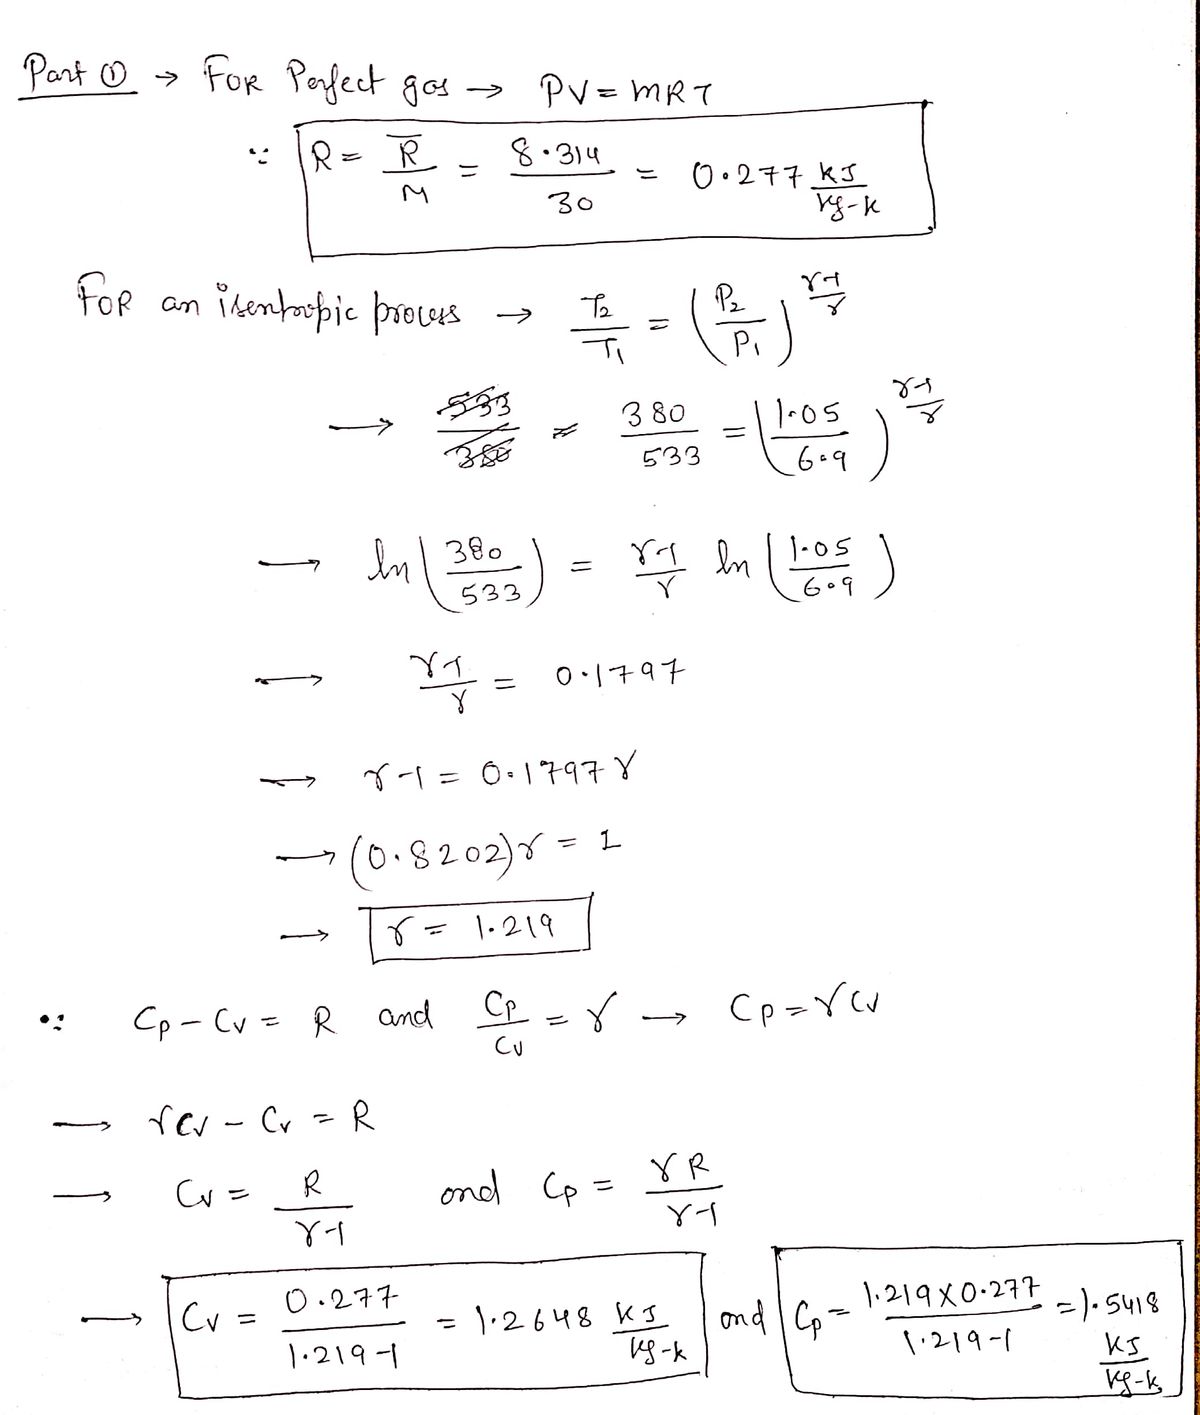 Part ① → FOR Perfect gas → PV = MRT
∵ R = R̅/M = 8.314/30 = 0.277 KJ/kg-k
FOR an isentropic process → T₂/T₁ = (P₂/P₁)^((γ-1)/γ)
→ 533/380 = 380/533 = (1.05/6.9)^((γ-1)/γ)
→ ln(380/533) = (γ-1)/γ ln(1.05/6.9)
→ (γ-1)/γ = 0.1797
→ γ-1 = 0.1797 γ
→ (0.8202)γ = 1
→ γ = 1.219
∵ Cp - Cv = R and Cp/Cv = γ → Cp = γ Cv
→ γCv - Cv = R
→ Cv = R/(γ-1) and Cp = γR/(γ-1)
→ Cv = 0.277/(1.219-1) = 1.2648 KJ/kg-k and Cp = (1.219 X 0.277)/(1.219-1) = 1.5418 KJ/kg-k